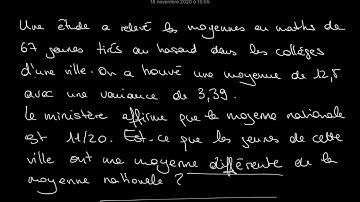 18 novembre 2020 à 15:55
Une étude a relevé les moyennes en maths de
67 jeunes tirés au hasard dans les collèges
d'une ville. On a trouvé une moyenne de 12,5
avec une variance de 3,39.
Le ministère affirme que la moyenne nationale
est 11/20. Est-ce que les jeunes de cette
ville ont une moyenne différente de la
moyenne nationale ?